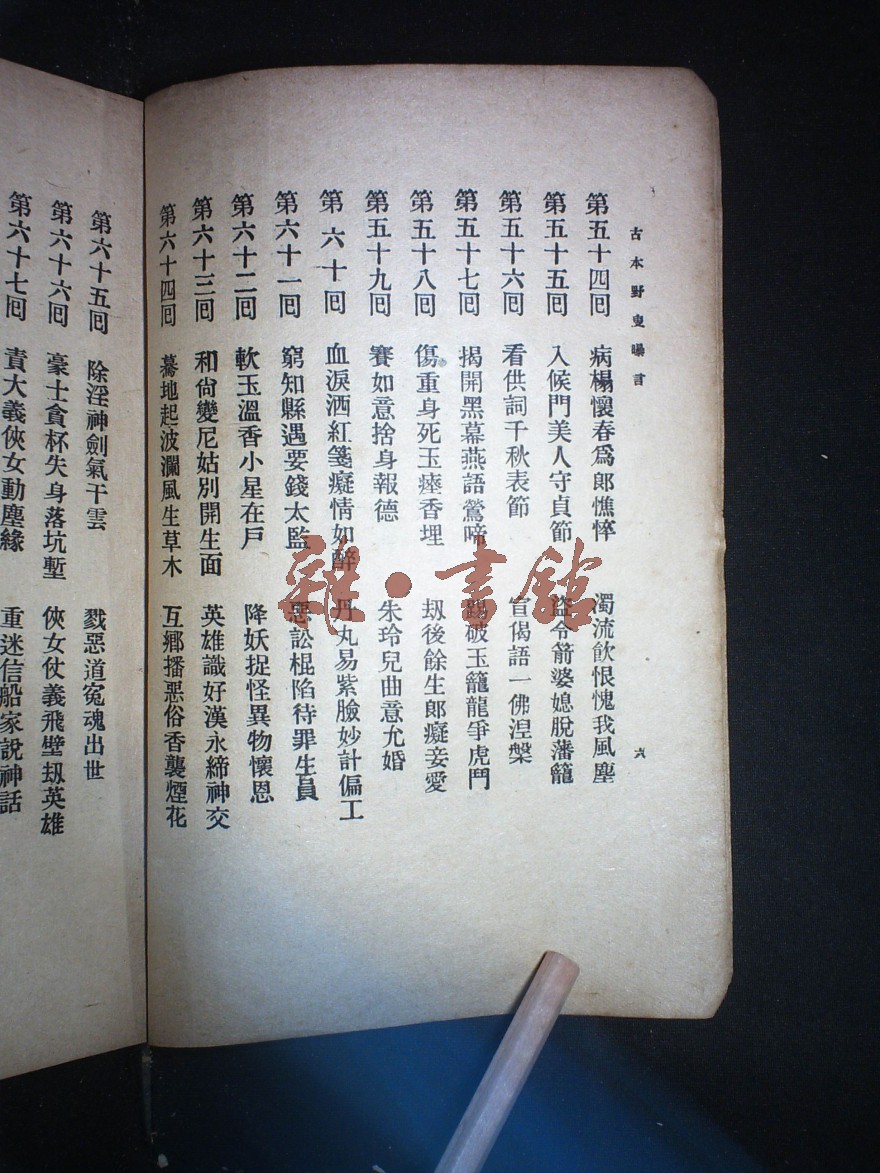 古本野叟曝言
六
第五十四囘 病榻懷春爲郎憔悴 濁流飮恨愧我風塵
第五十五囘 入候門美人守貞節 盜令箭婆媳脫藩籠
第五十六囘 看供詞千秋表節 宣偈語一佛涅槃
第五十七囘 揭開黑幕燕語鶯啼 踢破玉籠龍爭虎鬥
第五十八囘 傷重身死玉瘞香埋 刼後餘生郎癡妾愛
第五十九囘 賽如意捨身報德 朱玲兒曲意允婚
第六十囘 血淚洒紅箋癡情如醉 丹丸易紫臉妙計偏工
第六十一囘 窮知縣遇要錢太監 惡訟棍陷待罪生員
第六十二囘 軟玉溫香小星在戶 降妖捉怪異物懷恩
第六十三囘 和尙變尼姑別開生面 英雄識好漢永締神交
第六十四囘 驀地起波瀾風生草木 互鄉播惡俗香襲煙花
第六十五囘 除淫神劍氣干雲 戮惡道寃魂出世
第六十六囘 豪士貪杯失身落坑塹 俠女仗義飛壁刼英雄
第六十七囘 責大義俠女動塵緣 重迷信船家說神話
雜·書館